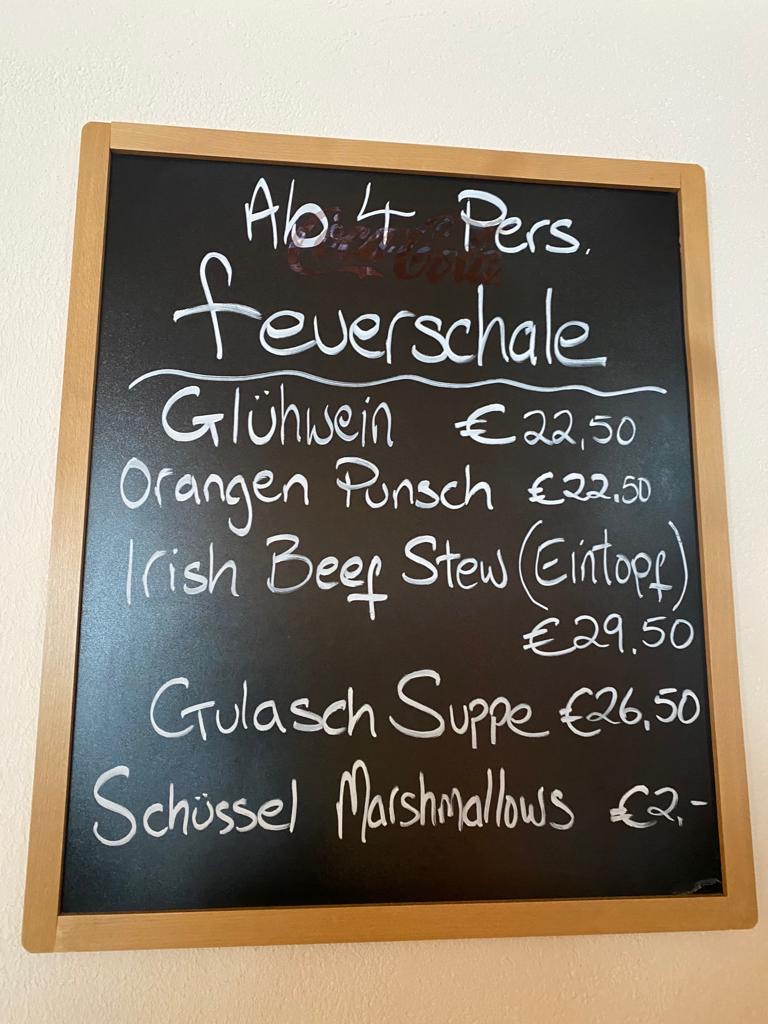 Ab 4 Pers.
Feuerschale
Glühwein €22,50
Orangen Punsch €22.50
Irish Beef Stew (Eintopf)
€29.50
Gulasch Suppe €26,50
Schüssel Marshmallows €2,-